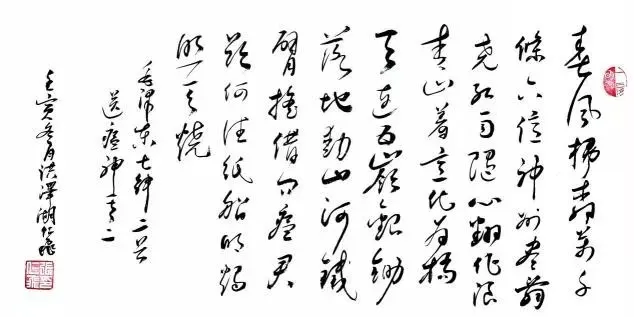 春风杨柳万千
條六億神州尽舜
尧红雨随心翻作浪
青山着意化为橋
天连五嶺銀鋤
落地動山河鐵
臂摇借问瘟君
欲何往纸船明烛
照天烧
毛泽东七律二首
送瘟神其二
壬寅冬月洪澤湖仁飛